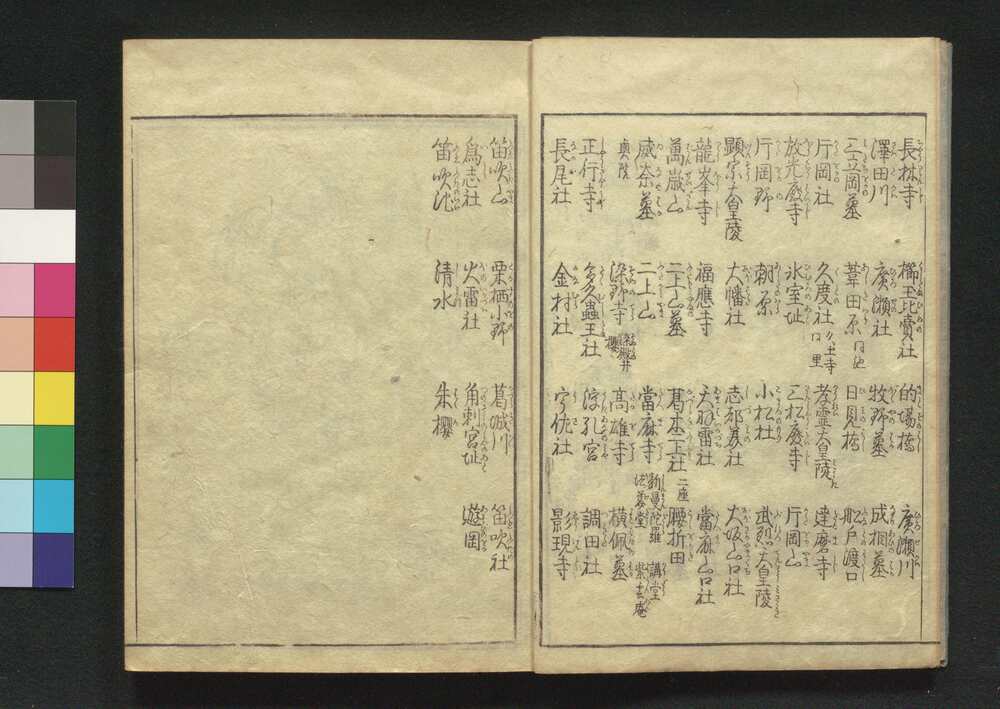 長林寺 櫛玉比賣社 的場橋 廣瀬川
澤田川 廣瀬社 牧野墓 成相墓
三立岡墓 葦田原 同池 日見橋 舩戸渡口
片岡社 久度社 久土寺 同里 孝霊天皇陵 達磨寺
放光廢寺 氷室址 三松廢寺 片岡山
片岡野 朝原 小松杜 武烈天皇陵
顕宗天皇陵 大幡社 志都美社 大坂山口社
龍峯寺 福應寺 天羽雷社 當麻山口社
萬歳山 二上山墓 葛木二上社 二座 腰折田
威奈墓 二上山 當麻寺 新曼陀羅 講堂 法華堂 紫雲庵
奥院 染野寺 染殿井 櫻 高雄寺 横佩墓
正行寺 多久蟲王社 浮孔宮 調田社
長尾社 金村社 宇佐社 影現寺
笛吹山 栗栖小野 葛城川 笛吹社
為志社 火雷社 角刺宮址 遊岡
笛吹池 清水 朱櫻